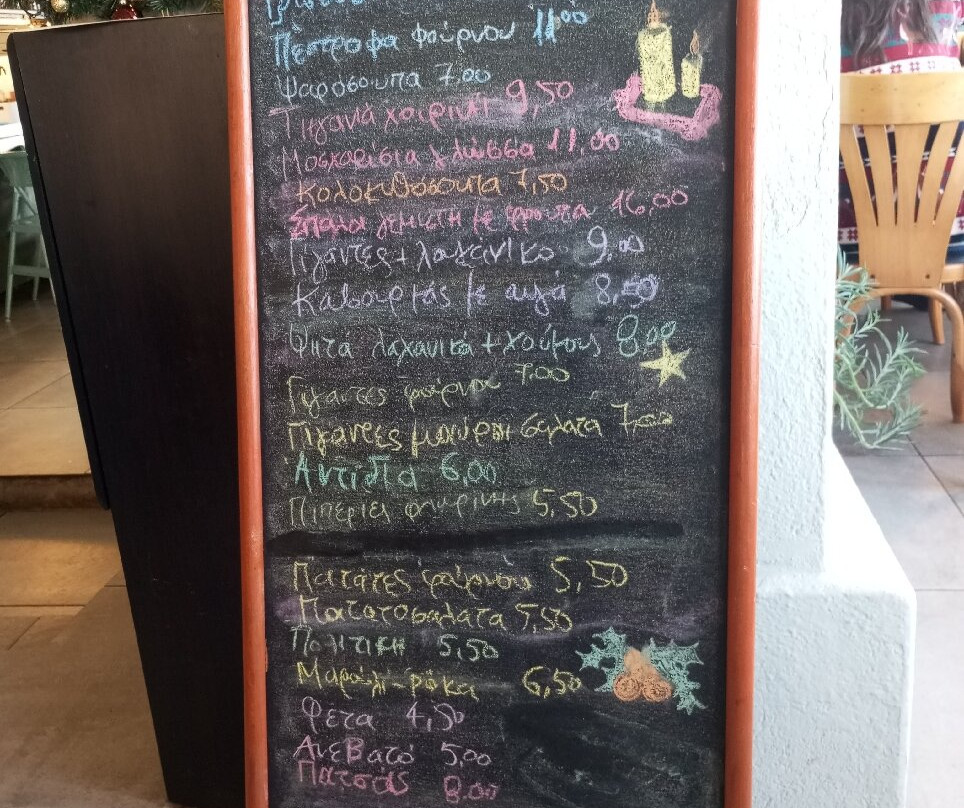 Πέστροφα φούρνου 11,00
Ψαρόσουπα 7,00
Τηγανιά χοιρινή 9,50
Μοσχαρίσια γλώσσα 11,00
Κολοκυθόσουπα 7,50
Σπάλα γεμιστή με φρούτα 16,00
Γίγαντες + λουκάνικο 9,00
Καβουρμάς με αυγά 8,50
Ψητά λαχανικά + χούμους 8,00
Γίγαντες φούρνου 7,00
Γίγαντες σαλάτα 7,00
Αντίδια 6,00
Πιπεριές φλωρίνης 5,50
Πατάτες φούρνου 5,50
Πατατοσαλάτα 5,50
Πολίτικη 5,50
Μαρούλι - ρόκα 6,50
Φέτα 4,50
Ανεβατό 5,00
Πατσάς 8,00